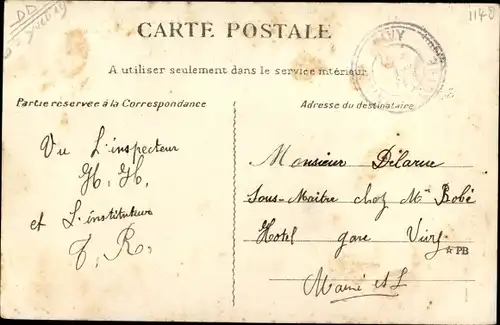 CARTE POSTALE
A utiliser seulement dans le service intérieur
Partie réservée à la Correspondance
Adresse du destinataire
Vu L'inspecteur
H. H.
et L'instituteur
T. R.
Monsieur Délarue
Sous-Maître chez Mr Robé
Hotel gare Vivy
Maine et L
☆PB
1140
DD